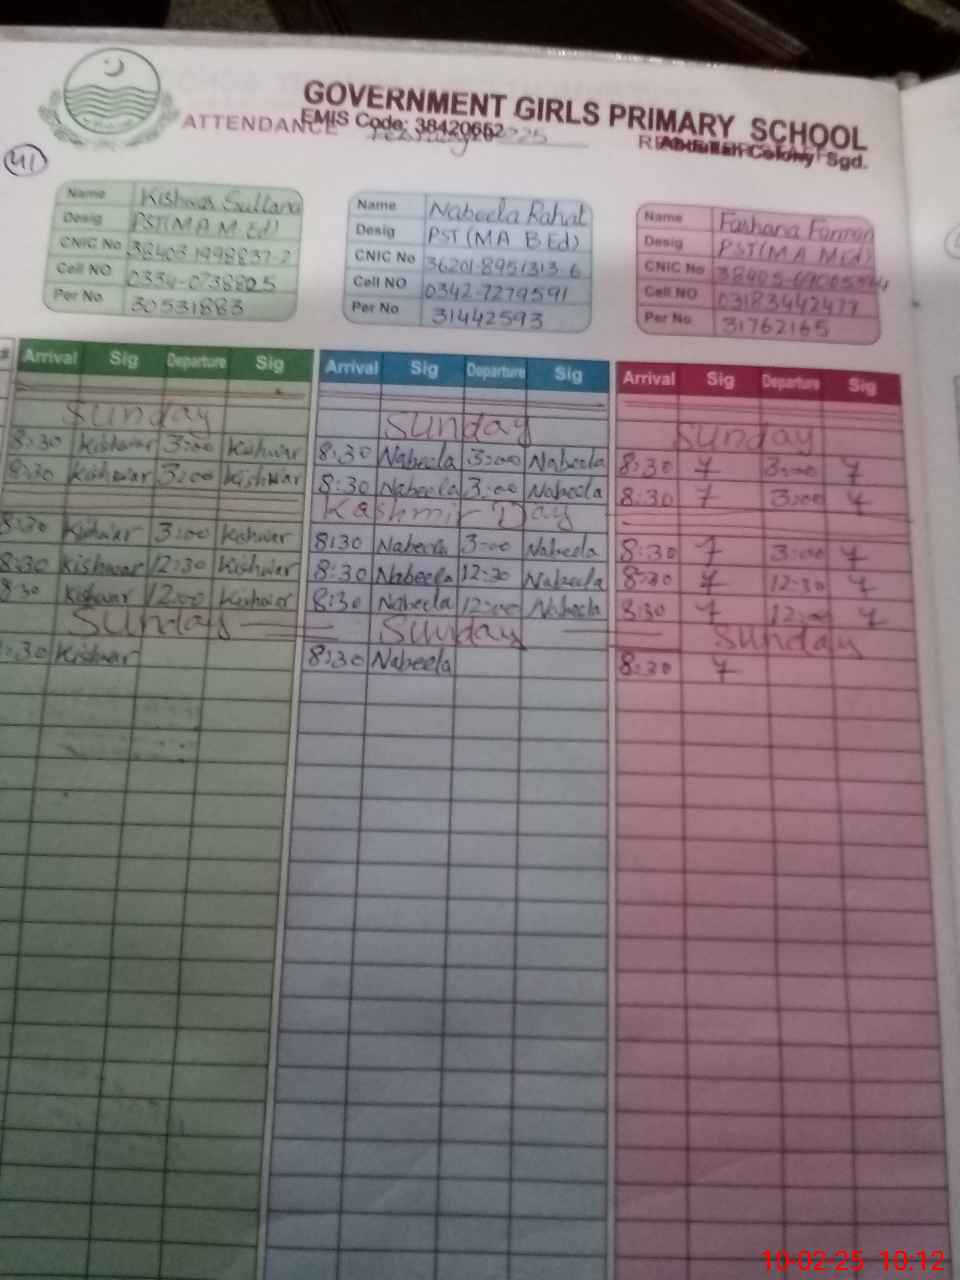 GOVERNMENT GIRLS PRIMARY SCHOOL
EMIS Code: 38420652
ATTENDANCE February 2025
Abdullah Colony Sgd.
41
Name Kishwar Sultana
Desig PST(M A M.Ed)
CNIC No
Cell NO 0334-0738825
Per No 30531883
Name Nabeela Rahat
Desig PST (MA B.Ed)
CNIC No 36201-8951313-6
Cell NO 0342-7279591
Per No 31442593
Name Farhana
Desig PST(M A M.Ed)
CNIC No
Cell NO 03183442477
Per No 31762165
Arrival Sig Departure Sig Arrival Sig Departure Sig Arrival Sig Departure Sig
Sunday Sunday Sunday
8:30 Kishwar 3:00 Kishwar 8:30 Nabeela 3:00 Nabeela 8:30 3:00
8:30 Kishwar 3:00 Kishwar 8:30 Nabeela 3:00 Nabeela 8:30 3:00
Kashmir Day
8:30 Kishwar 3:00 Kishwar 8:30 Nabeela 3:00 Nabeela 8:30 3:00
8:30 Kishwar 12:30 Kishwar 8:30 Nabeela 12:30 Nabeela 8:30 12:30
8:30 Kishwar 12:00 Kishwar 8:30 Nabeela 12:00 Nabeela 8:30 12:00
Sunday Sunday Sunday
:30 Kishwar 8:30 Nabeela 8:30
10-02-25 10:12